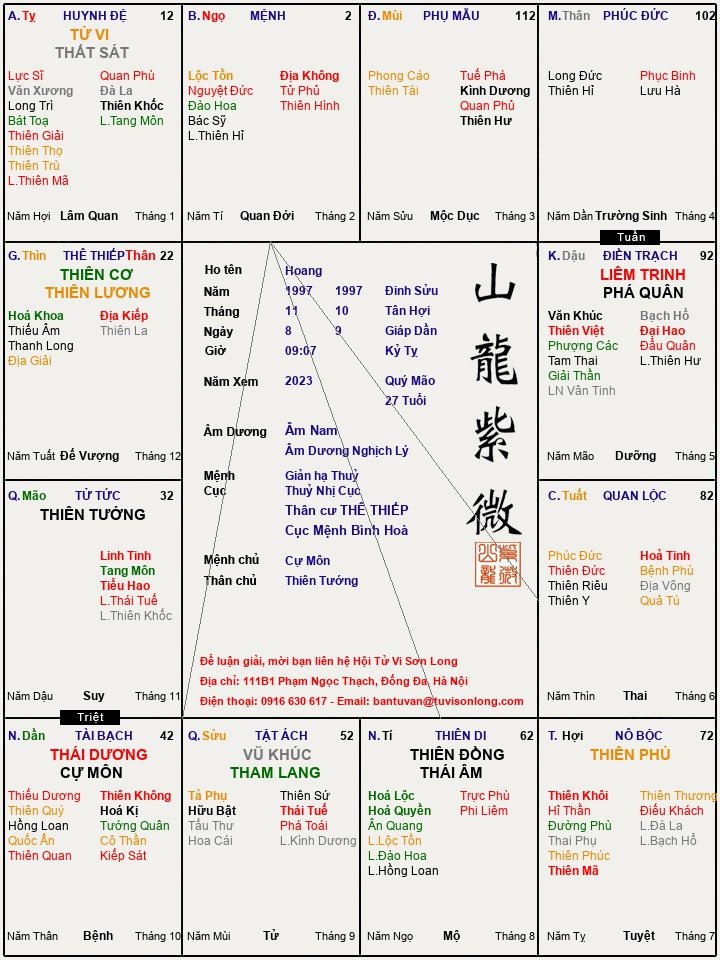 A. Tỵ HUYNH ĐỆ 12
TỬ VI
THẤT SÁT
Lực Sĩ Quan Phủ
Văn Xương Đà La
Long Trì Thiên Khốc
Bát Toạ L.Tang Môn
Thiên Giải
Thiên Thọ
Thiên Trù
L.Thiên Mã
Năm Hợi Lâm Quan Tháng 1
B. Ngọ MỆNH 2
Lộc Tồn Địa Không
Nguyệt Đức Tử Phù
Đào Hoa Thiên Hình
Bác Sỹ
L.Thiên Hỉ
Năm Tí Quan Đới Tháng 2
Đ. Mùi PHỤ MẪU 112
Phong Cáo Tuế Phá
Thiên Tài Kình Dương
Quan Phủ
Thiên Hư
Năm Sửu Mộc Dục Tháng 3
M.Thân PHÚC ĐỨC 102
Long Đức Phục Binh
Thiên Hỉ Lưu Hà
Năm Dần Trường Sinh Tháng 4
Tuần
G.Thìn THÊ THIẾP Thân 22
THIÊN CƠ
THIÊN LƯƠNG
Hoá Khoa Địa Kiếp
Thiếu Âm Thiên La
Thanh Long
Địa Giải
Năm Tuất Đế Vượng Tháng 12
Họ tên Hoang
Năm 1997 1997 Đinh Sửu
Tháng 11 10 Tân Hợi
Ngày 8 9 Giáp Dần
Giờ 09:07 Kỷ Tỵ
Năm Xem 2023 Quý Mão
27 Tuổi
Âm Dương Âm Nam
Âm Dương Nghịch Lý
Mệnh Giản hạ Thuỷ
Cục Thuỷ Nhị Cục
Thân cư THÊ THIẾP
Cục Mệnh Bình Hoà
Mệnh chủ Cự Môn
Thân chủ Thiên Tướng
Để luận giải, mời bạn liên hệ Hội Tử Vi Sơn Long
Địa chỉ: 111B1 Phạm Ngọc Thạch, Đống Đa, Hà Nội
Điện thoại: 0916 630 617 - Email: bantuvan@tuvisonlong.com
山
龍
紫
微
K.Dậu ĐIỀN TRẠCH 92
LIÊM TRINH
PHÁ QUÂN
Văn Khúc Bạch Hổ
Thiên Việt Đại Hao
Phượng Các Đẩu Quân
Tam Thai L.Thiên Hư
Giải Thần
LN Văn Tinh
Năm Mão Dưỡng Tháng 5
Q. Mão TỬ TỨC 32
THIÊN TƯỚNG
Linh Tinh
Tang Môn
Tiểu Hao
L.Thái Tuế
L.Thiên Khốc
Năm Dậu Suy Tháng 11
Triệt
C. Tuất QUAN LỘC 82
Phúc Đức Hoả Tinh
Thiên Đức Bệnh Phù
Thiên Riêu Địa Võng
Thiên Y Quả Tú
Năm Thìn Thai Tháng 6
N. Dần TÀI BẠCH 42
THÁI DƯƠNG
CỰ MÔN
Thiếu Dương Thiên Không
Thiên Quý Hoá Kị
Hồng Loan Tướng Quân
Quốc Ấn Cô Thần
Thiên Quan Kiếp Sát
Năm Thân Bệnh Tháng 10
Q. Sửu TẬT ÁCH 52
VŨ KHÚC
THAM LANG
Tả Phụ Thiên Sứ
Hữu Bật Thái Tuế
Tấu Thư Phá Toái
Hoa Cái L.Kình Dương
Năm Mùi Tử Tháng 9
N. Tí THIÊN DI 62
THIÊN ĐỒNG
THÁI ÂM
Hoá Lộc Trực Phù
Hoá Quyền Phi Liêm
Ân Quang
L.Lộc Tồn
L.Đào Hoa
L.Hồng Loan
Năm Ngọ Mộ Tháng 8
T. Hợi NÔ BỘC 72
THIÊN PHỦ
Thiên Khôi Thiên Thương
Hỉ Thần Điếu Khách
Đường Phù L.Đà La
Thai Phụ L.Bạch Hổ
Thiên Phúc
Thiên Mã
Năm Tỵ Tuyệt Tháng 7